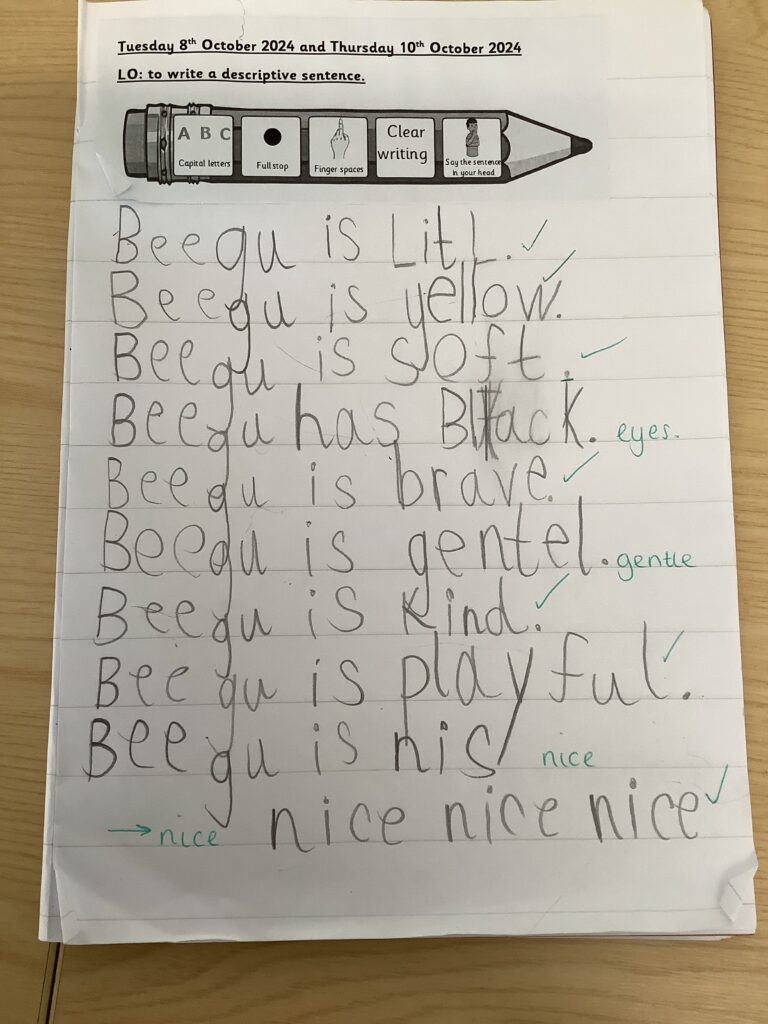 Tuesday 8th October 2024 and Thursday 10th October 2024
LO: to write a descriptive sentence.
A B C Capital letters
Full stop
Finger spaces
Clear writing
Say the sentence in your head
Beegu is Litl.
Beegu is yellow.
Beegu is soft.
Beegu has Black. eyes.
Beegu is brave.
Beegu is gentel. gentle
Beegu is kind.
Beegu is playful.
Beegu is nis nice
→ nice nice nice nice